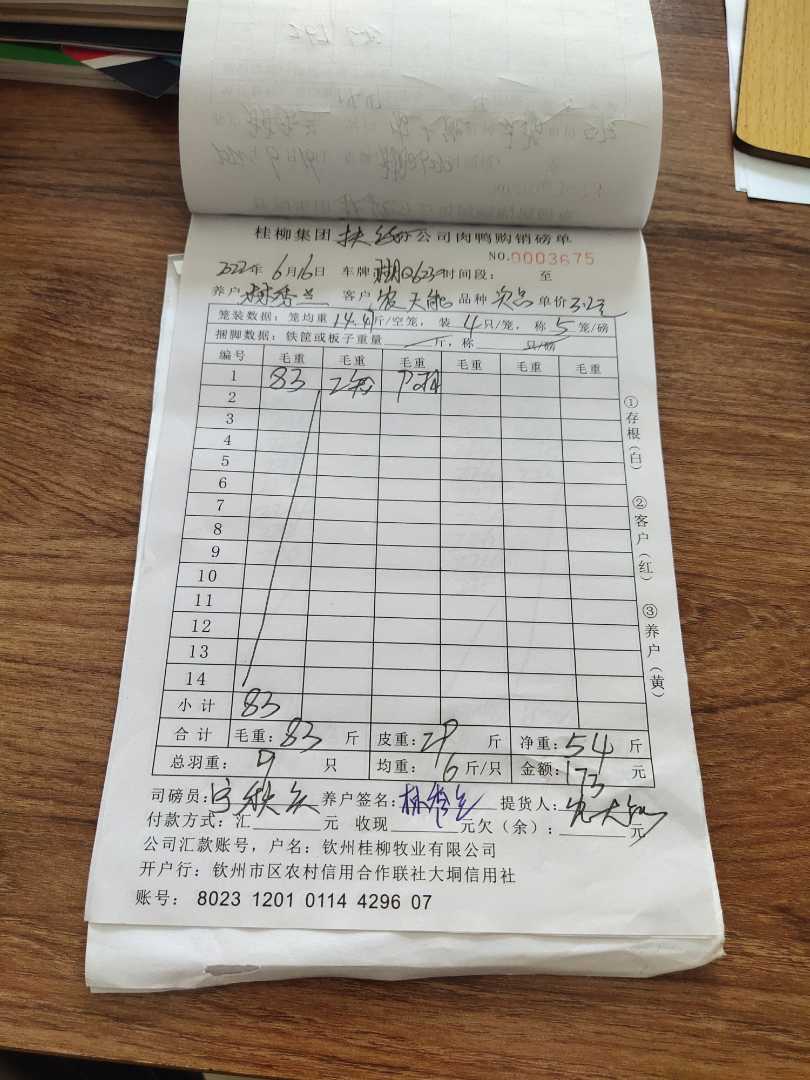 桂柳集团 扶绥 公司肉鸭购销磅单
NO.0003675
2022年 6月16日 车牌 Q623 时间段： 至
养户 林秀兰 客户 农天能 品种 次品 单价 3.2元
笼装数据：笼均重 14.47斤/空笼， 装 4 只/笼， 称 5 笼/磅
捆脚数据：铁筐或板子重量 斤，称 只/磅
编号 毛重 毛重 毛重 毛重 毛重 毛重
1 83 2笼
2
3
4
5
6
7
8
9
10
11
12
13
14
小计 83
合计 毛重：83 斤 皮重：29 斤 净重：54 斤
总羽重： 9 只 均重： 6 斤/只 金额：173 元
司磅员： 养户签名：林秀兰 提货人：
付款方式：汇 元 收现 元欠（余）： 元
公司汇款账号，户名：钦州桂柳牧业有限公司
开户行：钦州市区农村信用合作联社大垌信用社
账号： 8023 1201 0114 4296 07
①存根（白） ②客户（红） ③养户（黄）